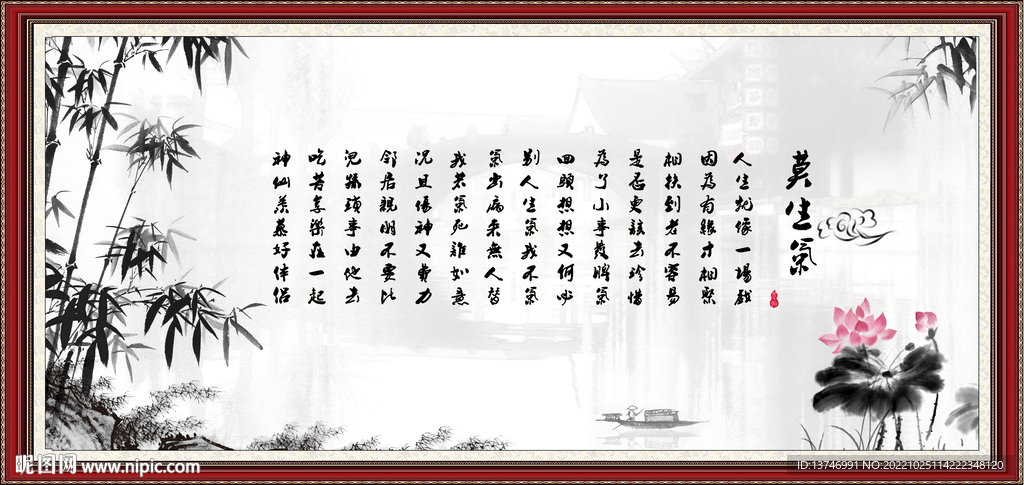 莫生氣
人生就像一場戲
因為有緣才相聚
相扶到老不容易
是否更該去珍惜
為了小事發脾氣
回頭想想又何必
別人生氣我不氣
氣出病來無人替
我若氣死誰如意
況且傷神又費力
邻居親朋不要比
兒孫瑣事由他去
吃苦享樂在一起
神仙羨慕好伴侶
昵图网 www.nipic.com
ID:13746991 NO:20221025114222348120